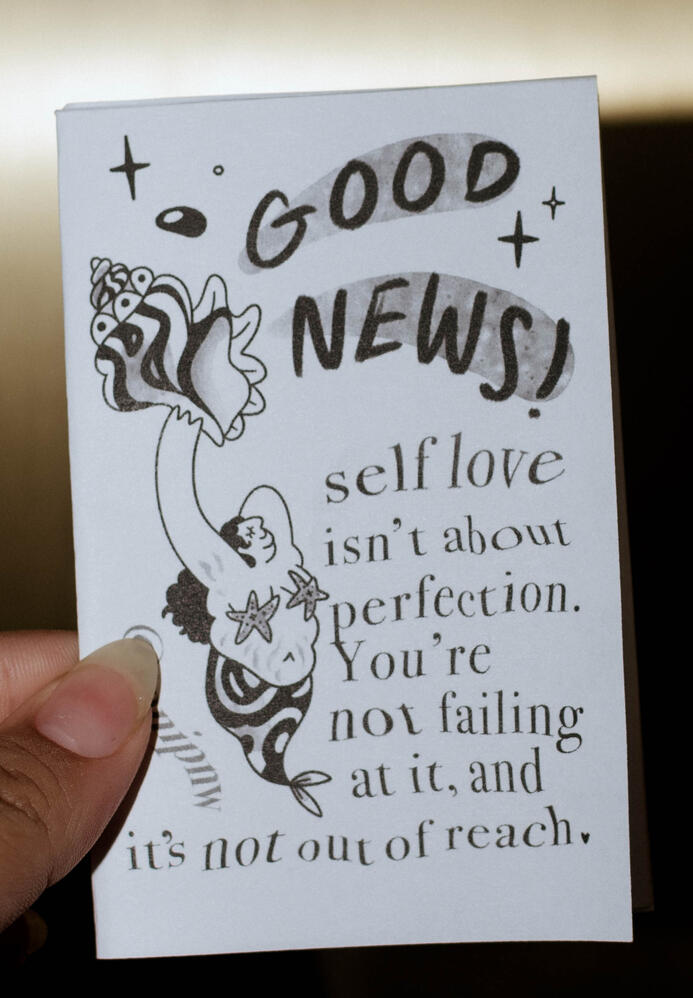 GOOD
NEWS!
self love
isn't about
perfection.
You're
not failing
at it, and
it's not out of reach.♥